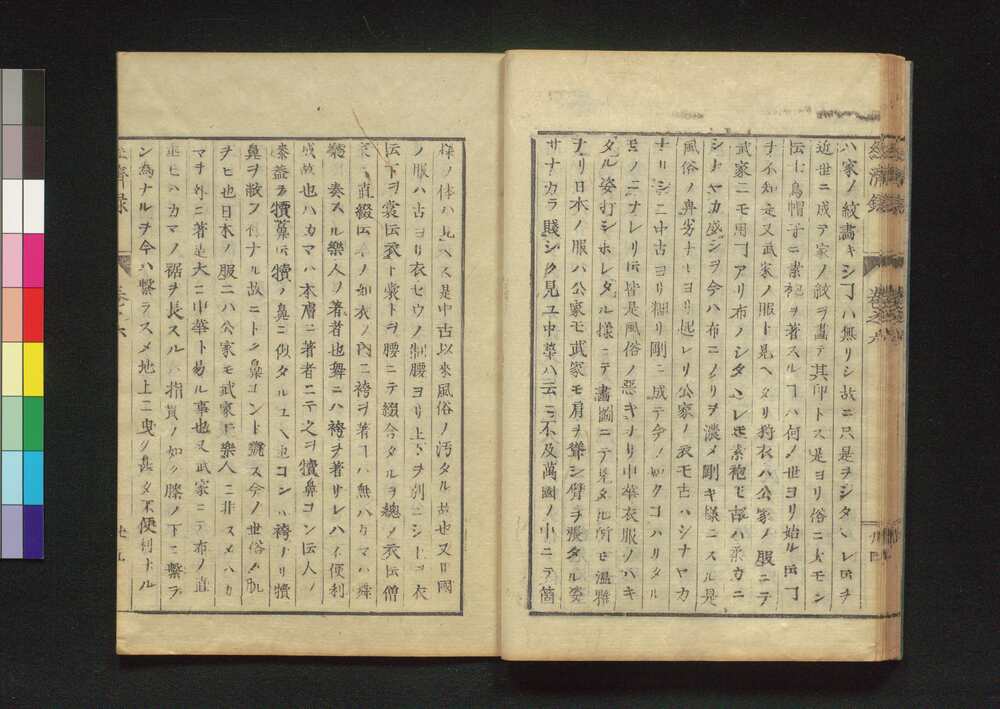 ハ家ノ紋畫キシヿハ無リシ故ニ只是ヲシタヽレ𪜈ヲ
近世ニ成テ家ノ紋ヲ畫テ其印トス是ヨリ俗ニ大モン
云士烏帽子ニ素袍ヲ著スルヿハ何ノ世ヨリ始ル𪜈ヿ
ヲ不知是又武家ノ服ト見ヘタリ狩衣ハ公家ノ服ニテ
武家ニモ用ヿアリ布ノシタヽレモ素袍モ古ハ柔カニ
シナヤカ成シヲ今ハ布ニノリヲ濃メ剛キ様ニスル是
風俗ノ鼻劣ナヨリ起レリ公家ノ衣モ古ハシナヤカ
ナリシニ中古ヨリ糊リ剛ニ成テ今ノ如クコハリタル
モノニナレリ是皆風俗ノ惡キナリ中華衣服ノハキ
タル姿打シホレタル様ニテ畫圖ニテ見タル所モ溫雅
ナリ日本ノ服ハ公家モ武家モ肩ヲ聳シ臂ヲ張タル姿
サナカラ賤シク見ユ中華ハ云ニ不及萬國ノ中ニテ箇
様ノ体ハ見ヘス是中古以來風俗ノ汚タル故也又日國
ノ服ハ古ヨリ衣セウノ制腰ヨリ上下ヲ別ニシ上ヲ衣
云下ヲ裳云衣ト裳トヲ腰ニテ綴合タルヲ總ノ衣云僧
家ノ直綴云モノ如衣ノ内ニ袴ヲ著ヿハ無ハカマハ舞
奏スル樂人ノ著者也舞ニハ袴ヲ著サレハ不便利
成故也ハカマハ本膚ニ著者ニテ之ヲ犢鼻コン云人ノ
膝蓋ヲ犢鼻云犢ノ鼻ニ似タルユヘ也コンハ袴ナリ犢
鼻ヲ蔽フ付ナル故ニトク鼻コント號ス今ノ世俗ノ肌
ヲヒ也日本ノ服ニハ公家モ武家モ樂人ニ非スメハカ
マヲ外ニ著是大ニ中華ト易ル事也又武家ニテ布ノ直
垂ヒハカマノ裾ヲ長スルハ指貫ノ如ク膝ノ下ニ繫ラ
ン為ナルヲ今ハ繫ラスメ地上ニ曳ク甚タ不便利ナル